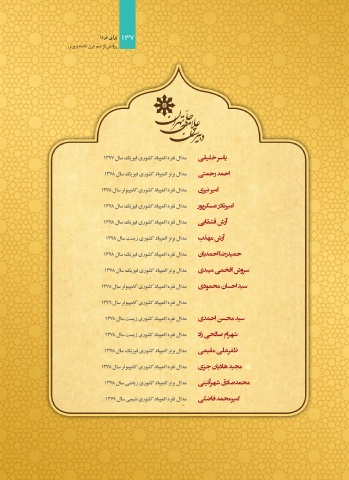 ۱۳۷
برای فردا
روایتی از نیم قرن
دبیرستان علامه حلی تهران
یاسر خلیقی مدال نقره المپیاد کشوری فیزیک سال ۱۳۷۷
احمد رحمتی مدال برنز المپیاد کشوری فیزیک سال ۱۳۷۸
امیر نیری مدال نقره المپیاد کشوری کامپیوتر سال ۱۳۷۸
امیرنادر عسکرپور مدال نقره المپیاد کشوری فیزیک سال ۱۳۷۸
آرش قشقایی مدال نقره المپیاد کشوری فیزیک سال ۱۳۷۸
آرش مهذب مدال برنز المپیاد کشوری زیست سال ۱۳۷۸
حمیدرضا احمدیان مدال نقره المپیاد کشوری فیزیک سال ۱۳۷۸
سروش افخمی میبدی مدال برنز المپیاد کشوری فیزیک سال ۱۳۷۸
سید احسان محمودی مدال نقره المپیاد کشوری کامپیوتر سال ۱۳۷۸
مدال نقره المپیاد کشوری کامپیوتر سال ۱۳۷۹
سید محسن احمدی مدال نقره المپیاد کشوری زیست سال ۱۳۷۸
شهرام صالحی زاد مدال نقره المپیاد کشوری زیست سال ۱۳۷۸
ظفرعلی مقیمی مدال برنز المپیاد کشوری فیزیک سال ۱۳۷۸
مجید هادیان جزی مدال نقره المپیاد کشوری کامپیوتر سال ۱۳۷۸
محمدصادق شهرآئینی مدال برنز المپیاد کشوری ریاضی سال ۱۳۷۸
امیرمحمد فاضلی مدال نقره المپیاد کشوری شیمی سال ۱۳۷۹